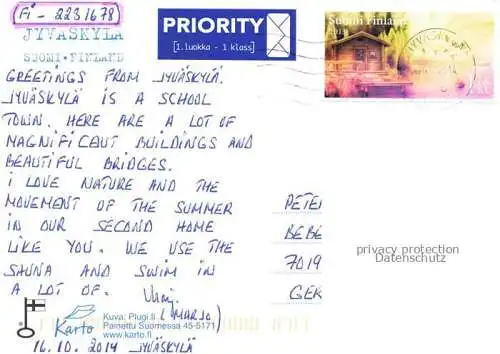 Fi - 2231678
JYVÄSKYLÄ
SUOMI - FINLAND
PRIORITY
[1.luokka - 1 klass]
Suomi Finland
GREETINGS FROM JYVÄSKYLÄ.
JYVÄSKYLÄ IS A SCHOOL
TOWN. HERE ARE A LOT OF
MAGNIFICENT BUILDINGS AND
BEAUTIFUL BRIDGES.
I LOVE NATURE AND THE
MOVEMENT OF THE SUMMER
IN OUR SECOND HOME
LIKE YOU. WE USE THE
SAUNA AND SWIM IN
A LOT OF.
(MARJO)
PETE
BEBE
7019
GER
privacy protection
Datenschutz
Karto
Kuva: Plugi.fi
Painettu Suomessa 45-5171
www.karto.fi
16.10.2014 JYVÄSKYLÄ